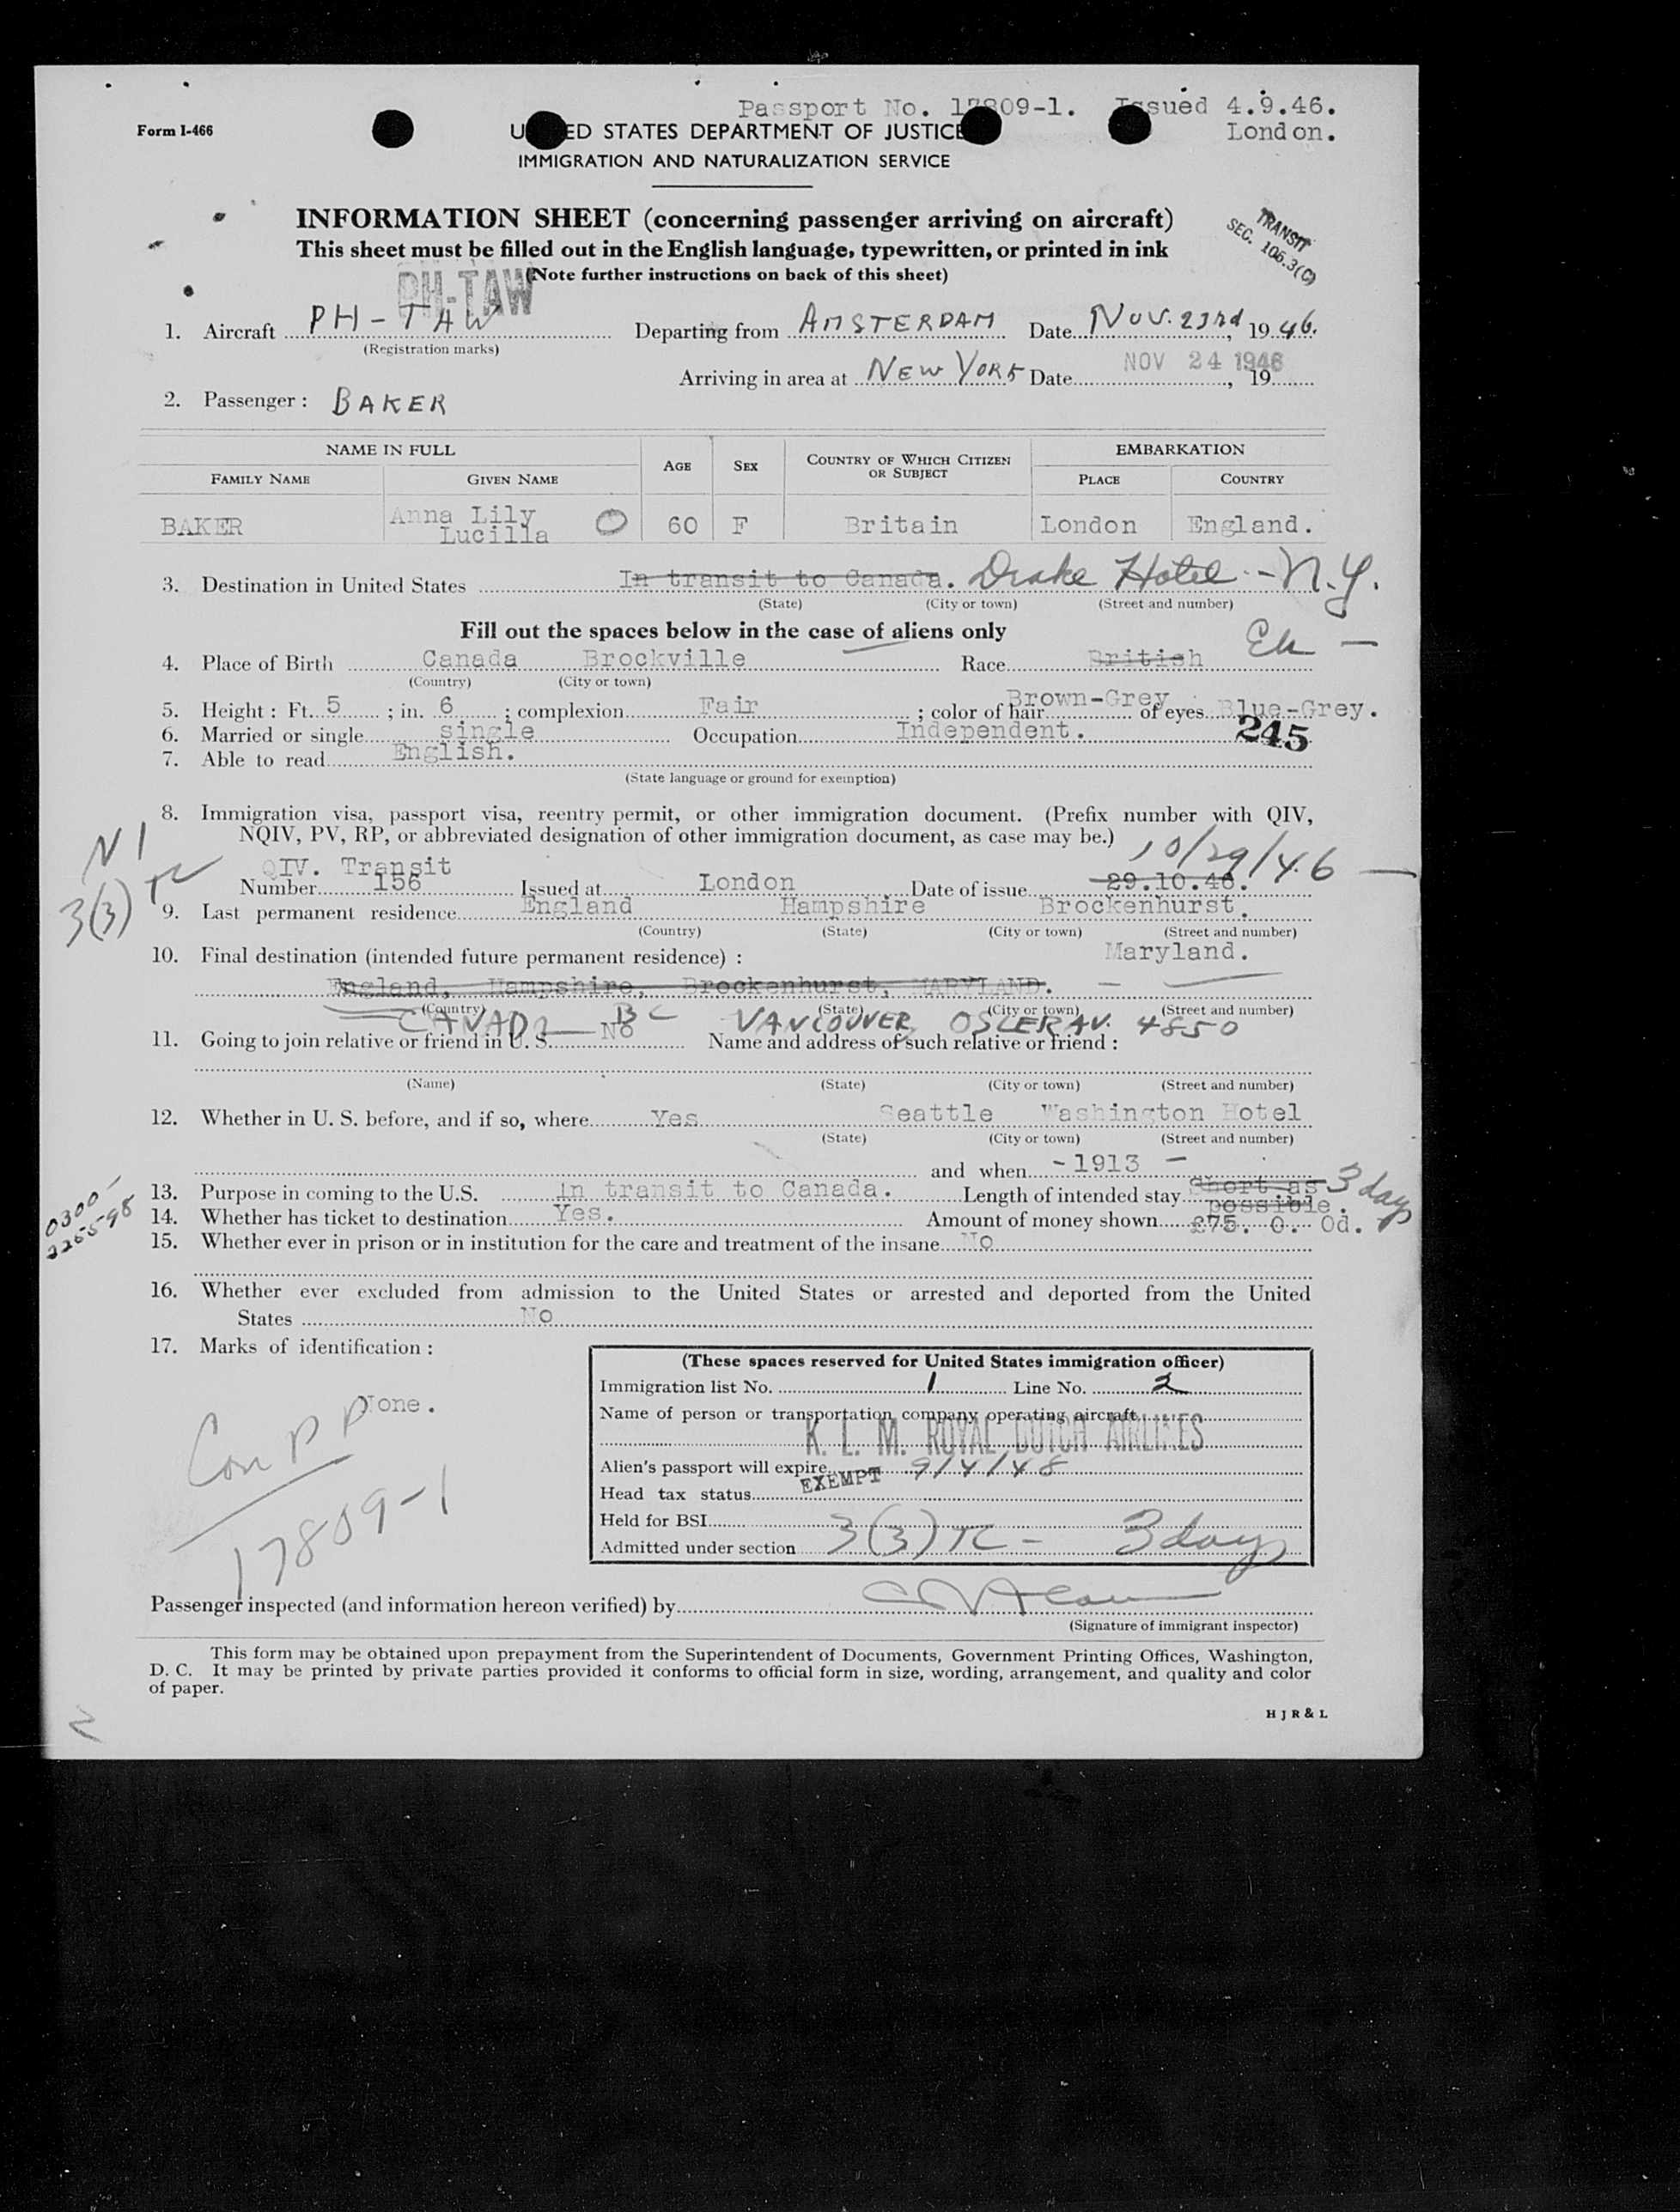 Passport No. 17809-1. Issued 4.9.46.
London.
Form I-466
UNITED STATES DEPARTMENT OF JUSTICE
IMMIGRATION AND NATURALIZATION SERVICE
INFORMATION SHEET (concerning passenger arriving on aircraft)
This sheet must be filled out in the English language, typewritten, or printed in ink
(Note further instructions on back of this sheet)
TRANSIT
SEC. 106.3(C)
PH-TAW
1. Aircraft PH-TAW Departing from AMSTERDAM Date NOV. 23rd, 1946.
(Registration marks)
Arriving in area at NEW YORK Date NOV 24 1946, 19
2. Passenger: BAKER
NAME IN FULL AGE SEX COUNTRY OF WHICH CITIZEN OR SUBJECT EMBARKATION
FAMILY NAME GIVEN NAME PLACE COUNTRY
BAKER Anna Lily Lucilla 60 F Britain London England.
3. Destination in United States In transit to Canada. Drake Hotel - N.Y.
(State) (City or town) (Street and number)
Fill out the spaces below in the case of aliens only
4. Place of Birth Canada Brockville Race British
(Country) (City or town)
5. Height: Ft. 5; in. 6; complexion Fair; color of hair Brown-Grey of eyes Blue-Grey.
6. Married or single single Occupation Independent. 245
7. Able to read English.
(State language or ground for exemption)
8. Immigration visa, passport visa, reentry permit, or other immigration document. (Prefix number with QIV,
NQIV, PV, RP, or abbreviated designation of other immigration document, as case may be.)
10/29/46
QIV. Transit
Number 156 Issued at London Date of issue 29.10.46.
3(3)
9. Last permanent residence England Hampshire Brockenhurst.
(Country) (State) (City or town) (Street and number)
10. Final destination (intended future permanent residence): Maryland.
England, Hampshire, Brockenhurst, MARYLAND.
(Country) (State) (City or town) (Street and number)
CANADA BC VANCOUVER OSLER AV. 4850
11. Going to join relative or friend in U. S. No Name and address of such relative or friend:
(Name) (State) (City or town) (Street and number)
12. Whether in U. S. before, and if so, where Yes Seattle Washington Hotel
(State) (City or town) (Street and number)
and when -1913 -
0300-
13. Purpose in coming to the U.S. in transit to Canada. Length of intended stay Short as possible. 3 days
14. Whether has ticket to destination Yes. Amount of money shown £75. 0. 0d.
15. Whether ever in prison or in institution for the care and treatment of the insane No
16. Whether ever excluded from admission to the United States or arrested and deported from the United
States No
17. Marks of identification:
None.
Can PP
17809-1
(These spaces reserved for United States immigration officer)
Immigration list No. 1 Line No. 2
Name of person or transportation company operating aircraft
K. L. M. ROYAL DUTCH AIRLINES
Alien's passport will expire 9/4/48
Head tax status EXEMPT
Held for BSI
Admitted under section 3(3) TC - 3 days
Passenger inspected (and information hereon verified) by
(Signature of immigrant inspector)
This form may be obtained upon prepayment from the Superintendent of Documents, Government Printing Offices, Washington,
D. C. It may be printed by private parties provided it conforms to official form in size, wording, arrangement, and quality and color
of paper.
H J R & L